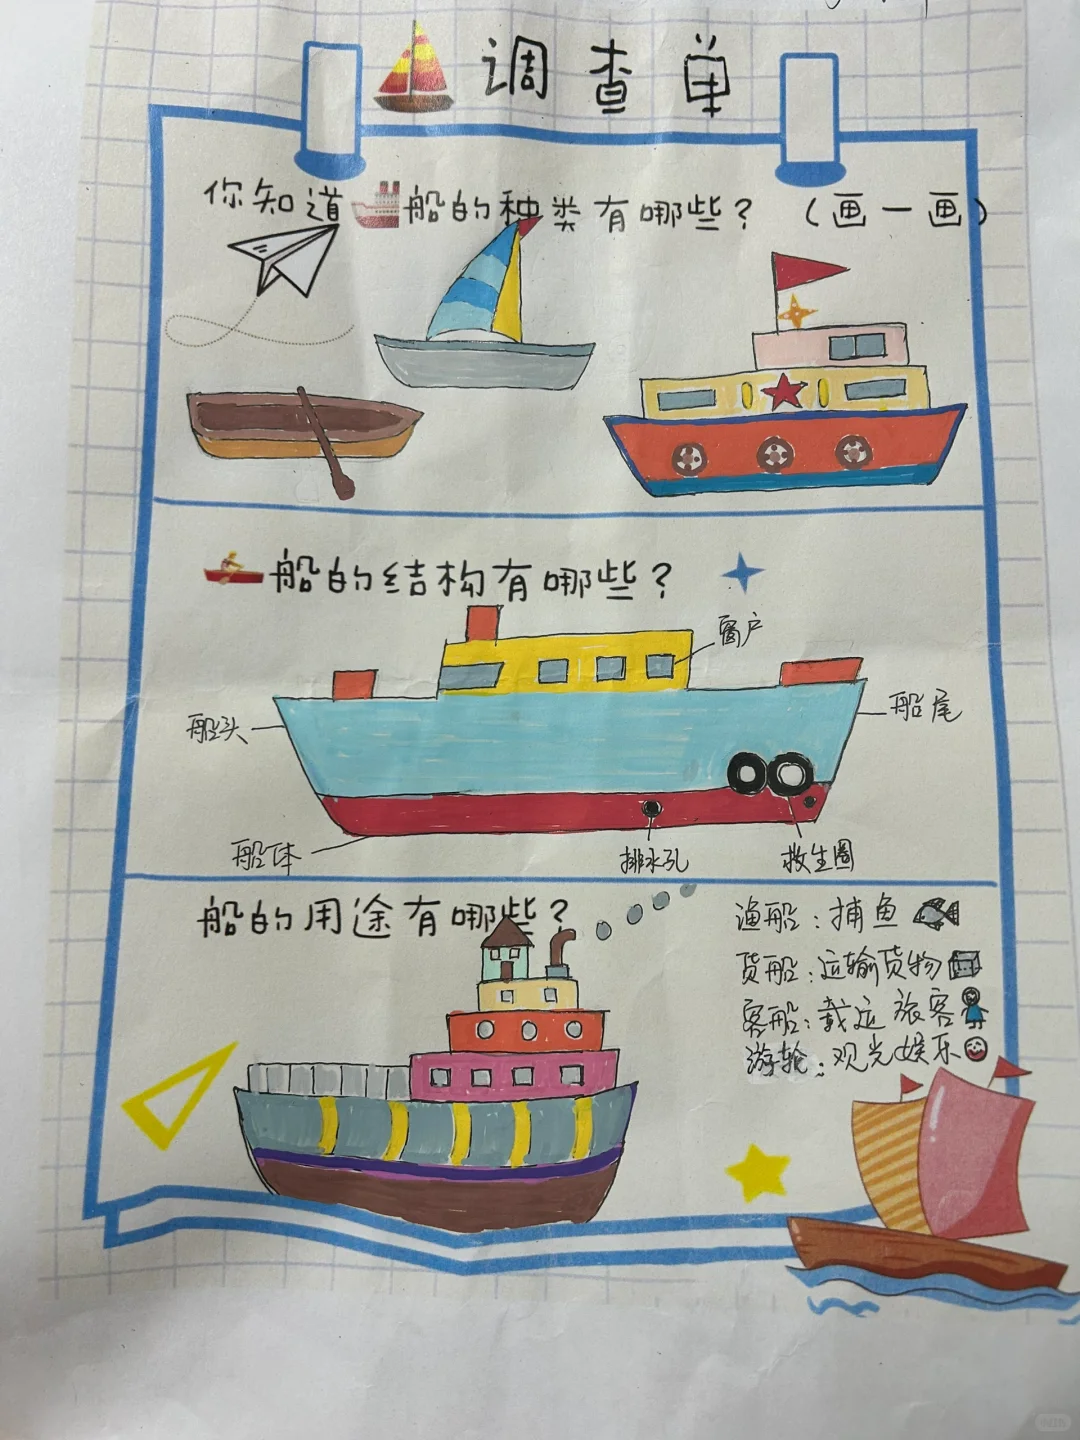 调查单
你知道船的种类有哪些？（画一画）
船的结构有哪些？
窗户
船头
船尾
船体
排水孔
救生圈
船的用途有哪些？
渔船：捕鱼
货船：运输货物
客船：载运旅客
游轮：观光娱乐